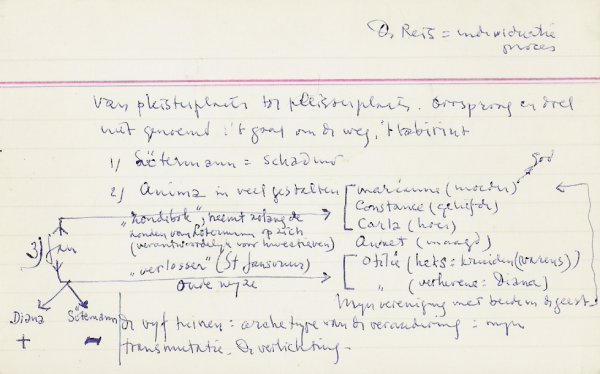 De Reis = individuatie
proces
Van pleisterplaats tot pleisterplaats. Oorsprong en doel
niet genoemd: 't gaat om de weg, 't labirint
1) Sötermann = schaduw
2) Anima in veel gestalten
Marianne (moeder)
God
Constance (geliefde)
Carla (hoer)
Annet (maagd)
Otilie (heks: kruiden (varens))
" (verheven: Diana)
3) Jan
"zondebok", neemt zolang de
zonden van Sötermann op zich
(verantwoordelijk voor
"verlosser" (St Jans
Oude wijze
Mijn vereniging met beiden is geest
Diana
+
Sötemann
-
De vijf tuinen = archetype van de verandering = mijn
transmutatie. De verlichting.